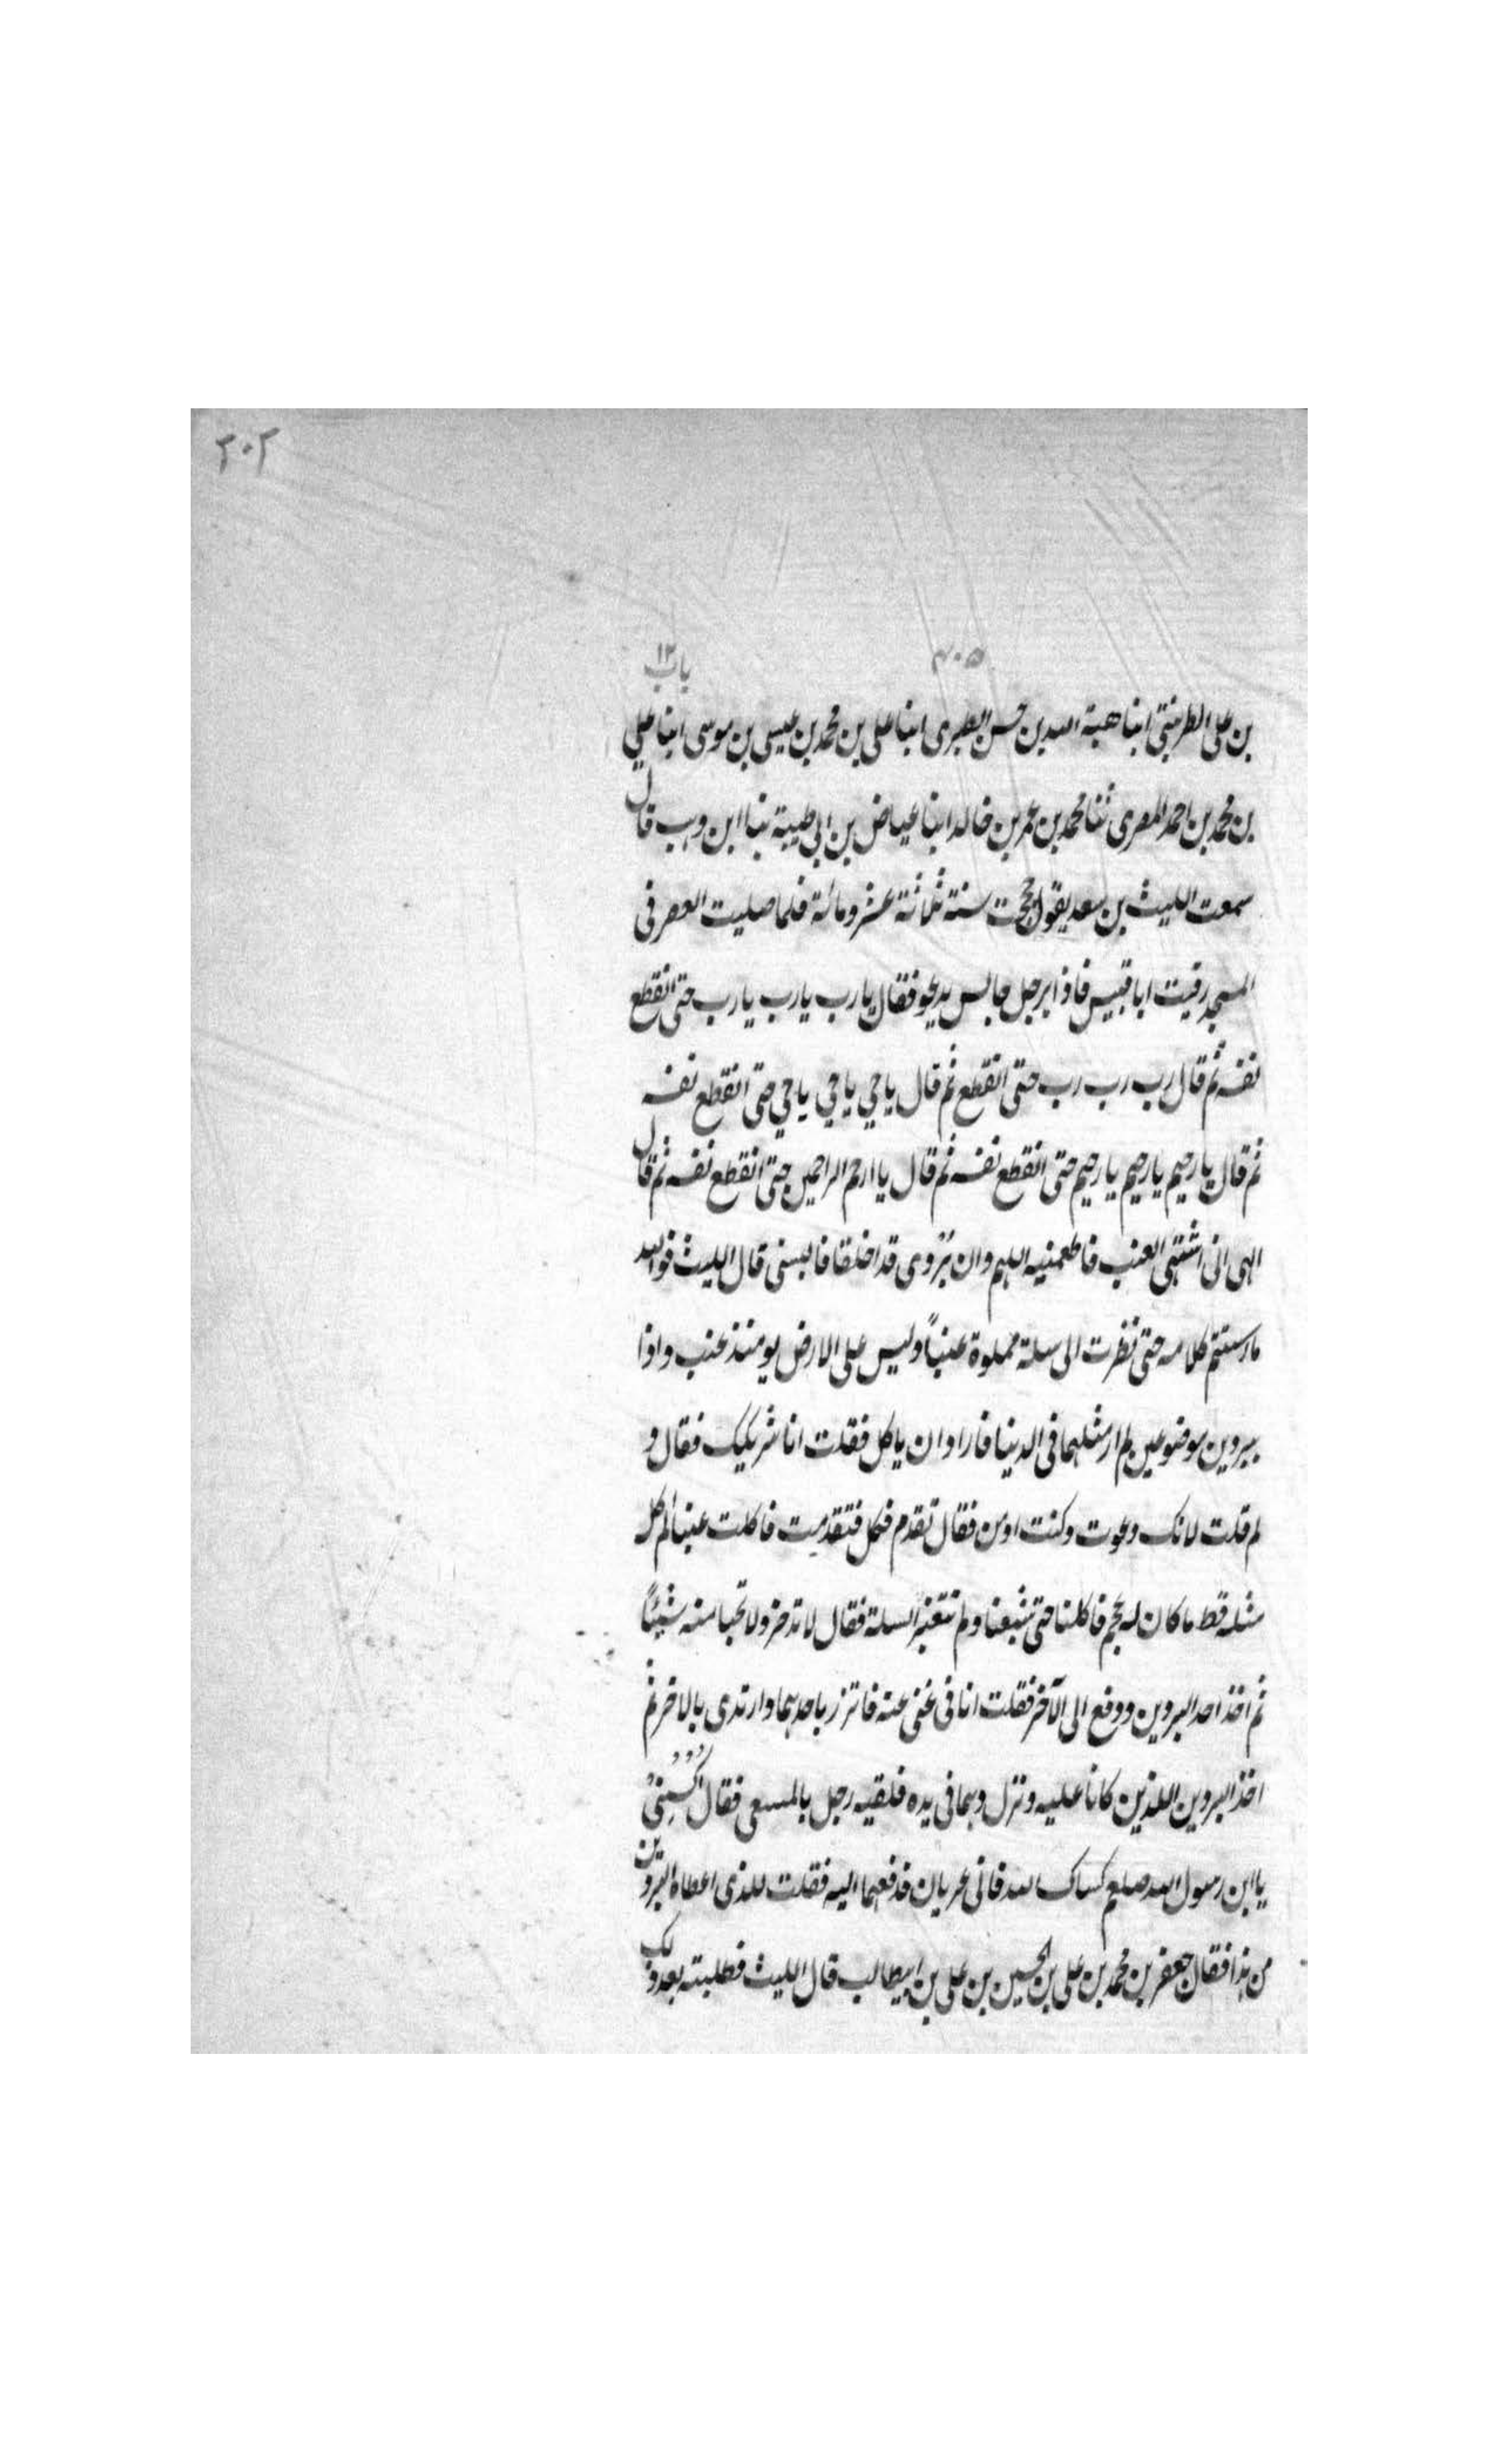 ٢٠٢
٤٠٥ باب ١٢
بن على الطريثيثى ابنا هبة الله بن حسن الطبرى ابنا على بن محمد بن عيسى بن موسى ابنا على
بن محمد بن احمد المصرى ثنا محمد بن عمر بن خالد ابنا عياض بن ابى طيبة ثنا ابن وهب قال
سمعت الليث بن سعد يقول حججت سنة ثلاثة عشر ومائة فلما صليت العصر فى
المسجد رقيت ابا قبيس فاذا برجل جالس يدعو فقال يا رب يا رب يا رب حتى انقطع
نفسه ثم قال رب رب رب حتى انقطع ثم قال يا حي يا حي يا حي حتى انقطع نفسه
ثم قال يا رحيم يا رحيم يا رحيم حتى انقطع نفسه ثم قال يا ارحم الراحمين حتى انقطع نفسه ثم قال
الهى انى اشتهى العنب فاطعمنيه اللهم وان بردى قد اخلقا فالبسنى قال الليث فوالله
ما استتم كلامه حتى نظرت الى سلة مملوة عنباً وليس على الارض يومئذ عنب واذا
ببردين موضوعين لم ار مثلهما فى الدنيا فاراد ان ياكل فقلت انا شريكك فقال و
لم قلت لانك دعوت وكنت اومن فقال تقدم فكل فتقدمت فاكلت عنبا لم اكل
مثله قط ما كان له عجم فاكلنا حتى شبعنا ولم تتغير السلة فقال لا تدخر ولا تخبا منه شيئاً
ثم اخذ احد البردين ودفع الى الآخر فقلت انا فى غنى عنه فاتزر باحدهما وارتدى بالاخر ثم
اخذ البردين اللذين كانا عليه ونزل وهما فى يده فلقيه رجل بالمسعى فقال اكسنى
يا ابن رسول الله صلعم كساك الله فانى عريان فدفعهما اليه فقلت للذى اعطاه البردين
من هذا فقال جعفر بن محمد بن على بن الحسين بن على بن ابيطالب قال الليث فطلبته بعد ذلك